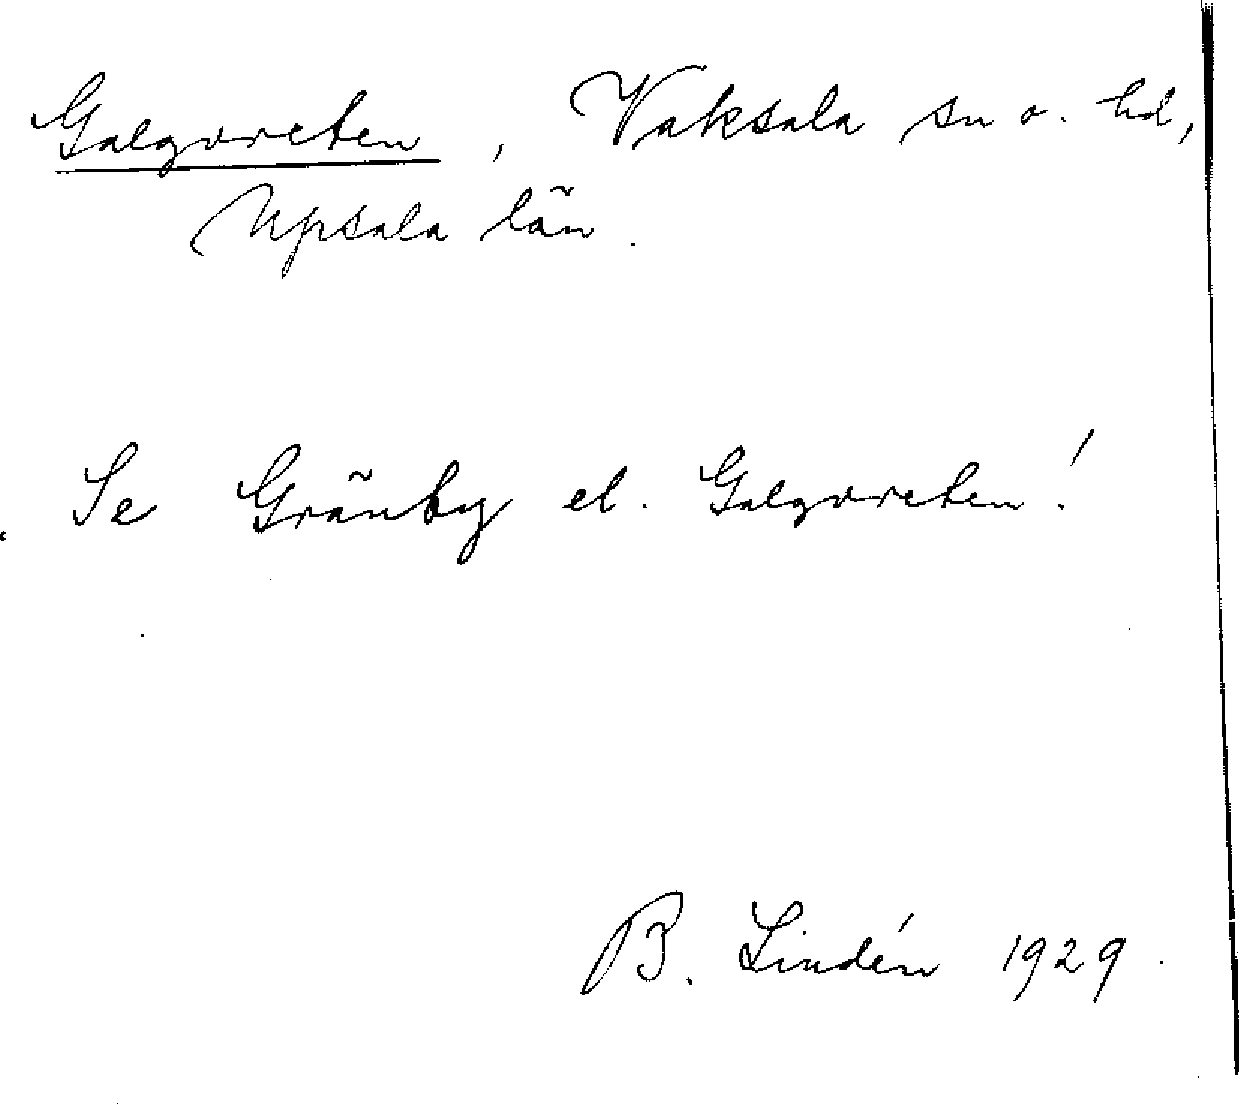 Galgvreten, Vaksala sn o. hd,
Upsala län.
Se Gränby el. Galgvreten!
B. Lindén 1929.